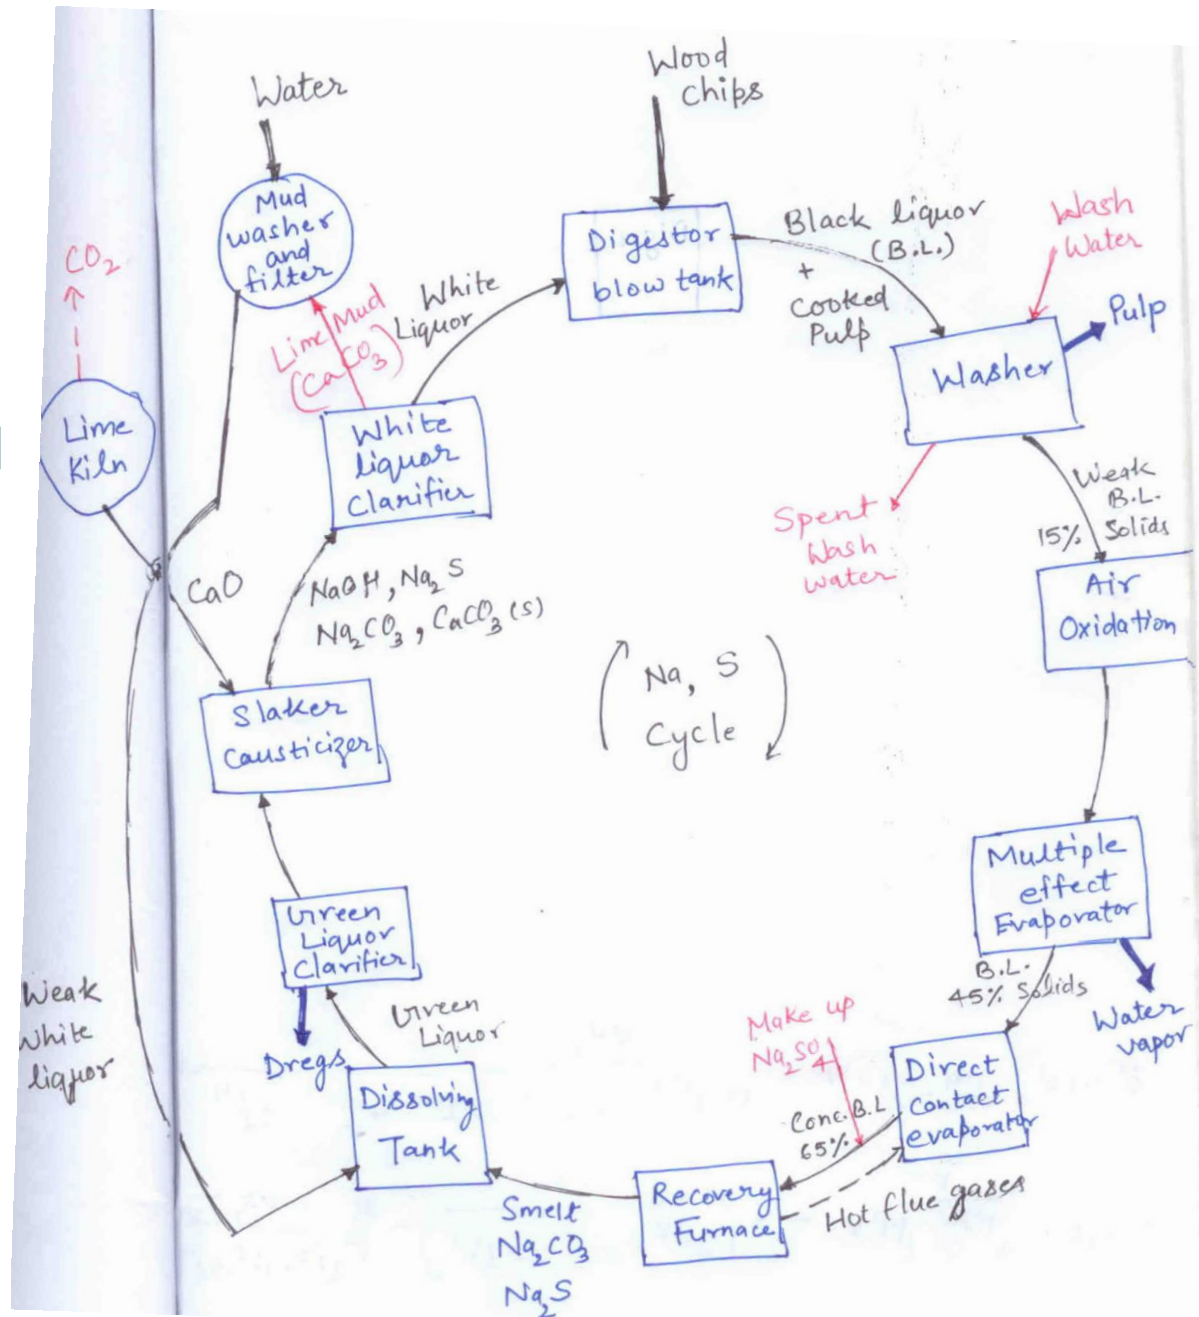 Water
Wood
Chips
Mud
washer
and
filter
CO₂
Lime
Kiln
Lime Mud
(CaCO₃)
White
Liquor
Digestor
blow tank
Black liquor
(B.L.)
+
Cooked
Pulp
Wash
Water
Pulp
Washer
White
liquor
Clarifier
Spent
Wash
water
Weak
B.L.
15% Solids
Air
Oxidation
CaO
NaOH, Na₂S
Na₂CO₃, CaCO₃(s)
Na, S
Cycle
Slaker
Causticizer
Multiple
effect
Evaporator
Green
Liquor
Clarifier
B.L.
45% Solids
Water
vapor
Weak
White
liquor
Dregs
Green
Liquor
Make up
Na₂SO₄
Direct
Contact
evaporator
Dissolving
Tank
Conc. B.L
65%
Recovery
Furnace
Hot flue gases
Smelt
Na₂CO₃
Na₂S